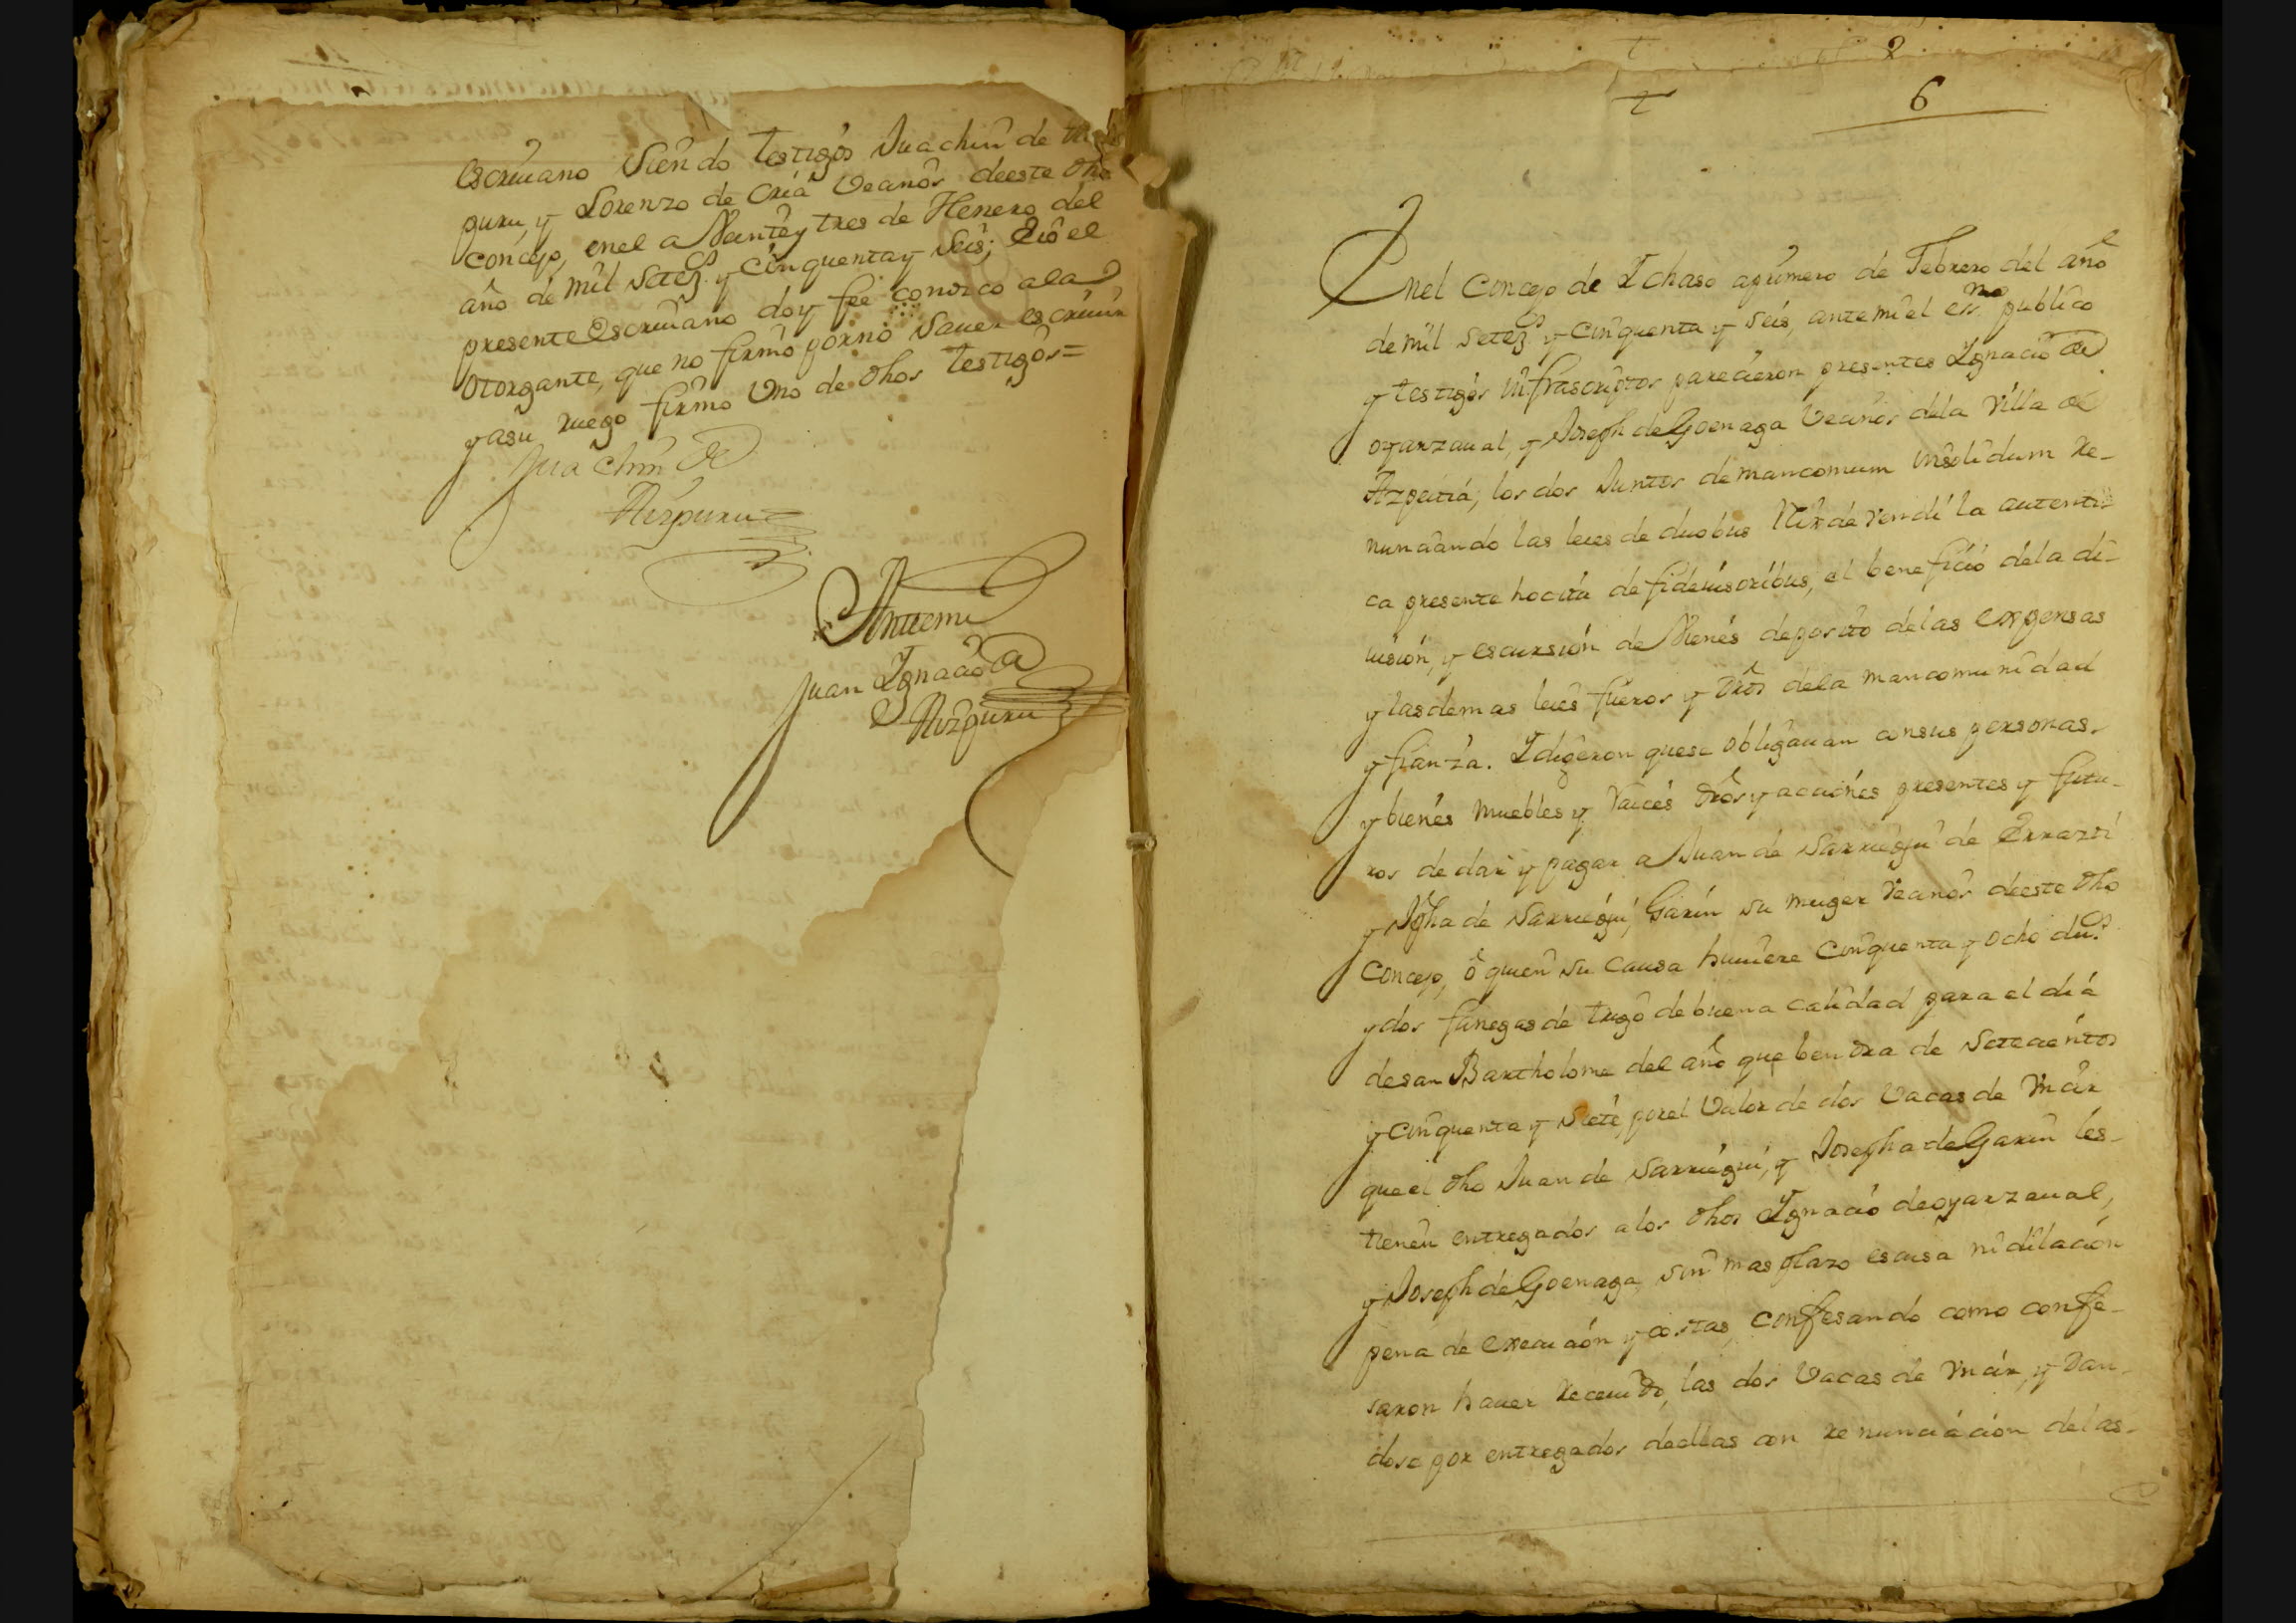 escriuano siendo testigos Juachin de Aiz
puru, y Lorenzo de Oria vecinos de este dho
concejo, en el a Veinte y tres de Henero del
año de mil setez.s y cinquenta y seis; E io el
presente escriuano doy fee conozco a la
otorgante, que no firmó por no sauer escriuir
y a su ruego firmo Uno de dhos testigos=
Juachin de
Aizpuru
Antemi
Juan Ignacio de
Aizpuru
2
6
En el Concejo de Ichaso a primero de Febrero del año
de mil setez.s y cinquenta y seis, ante mi el ess.no publico
y testigos infrascriptos parecieron presentes Ignacio de
oyarzaual, y Joseph de Goenaga vecinos de la villa de
Azpeitia; los dos Juntos de mancomum insolidum re-
nunciando las leies de duobus Reix de vendi la autenti-
ca presente hocita de fideiusoribus, el beneficio de la di-
uision, y escursion de Vienes deposito de las expensas
y las demas leies fueros y dros de la mancomunidad
y fianza. I digeron que se obligauan con sus personas
y bienes muebles y raices dros y acciones presentes y futu-
ros de dar y pagar a Juan de Sarriegui de Errazti
y Jpha de Sarriegui, Garin su muger vecinos de este dho
concejo, ó quien su causa huuiere cinquenta y ocho du.s
y dos fanegas de trigo de buena calidad para el dia
de san Bartholome del año que bendra de setecientos
y cinquenta y siete, por el valor de dos Vacas de Mâix
que el dho Juan de Sarriegui, y Josepha de Garin les-
tienen entregados a los dhos Ignacio de oyarzaual,
y Joseph de Goenaga, sin mas plazo escusa ni dilacion
pena de execucion y costas, confesando como confe-
saron hauer receuido, las dos Vacas de Máix, y dan-
dose por entregados de ellas con renunciacion de las-